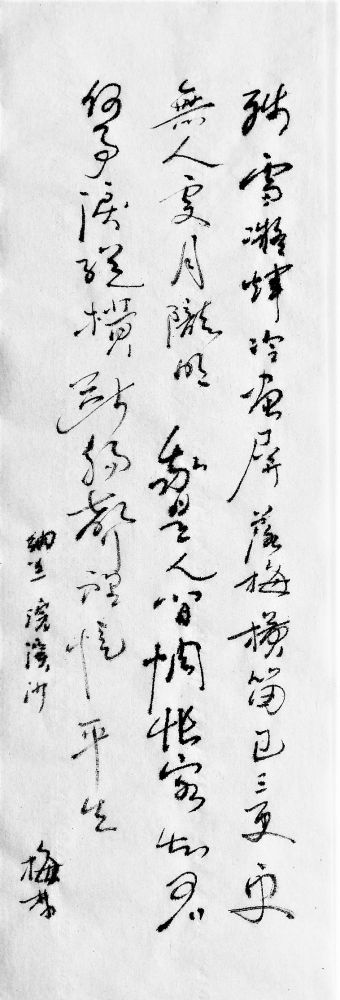 殘雪凝輝冷畫屏落梅橫笛已三更更
無人處月朧明 我是人間惆悵客知君
何事淚縱橫 斷腸聲裡憶平生
納蘭 浣溪沙
梅